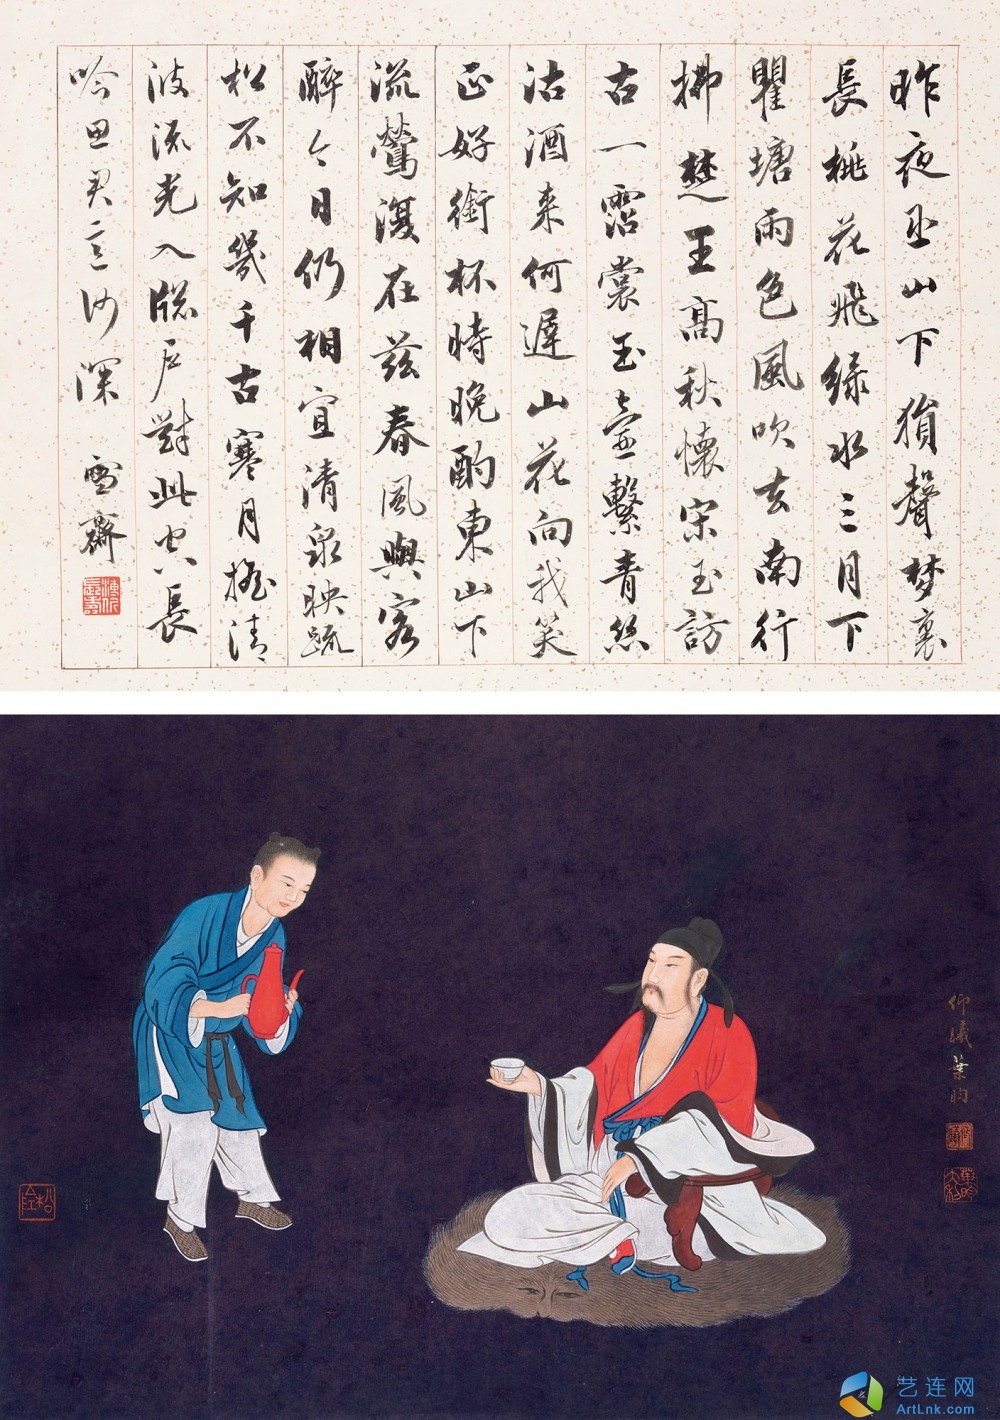 昨夜巫山下猿聲梦裏
長桃花飛緑水三月下
瞿塘雨色風吹去南行
拂楚王高秋懷宋玉訪
古一霑裳玉壺繫青絲
沽酒来何遲山花向我笑
正好銜杯時晚酌東山下
流鶯復在兹春風與客
醉今日仍相宜清泉映疏
松不知幾千古寒月摇清
波流光入牕户對此空長
吟思君意何深 雪齋
仰曦葉昀
艺连网
ArtLnk.com